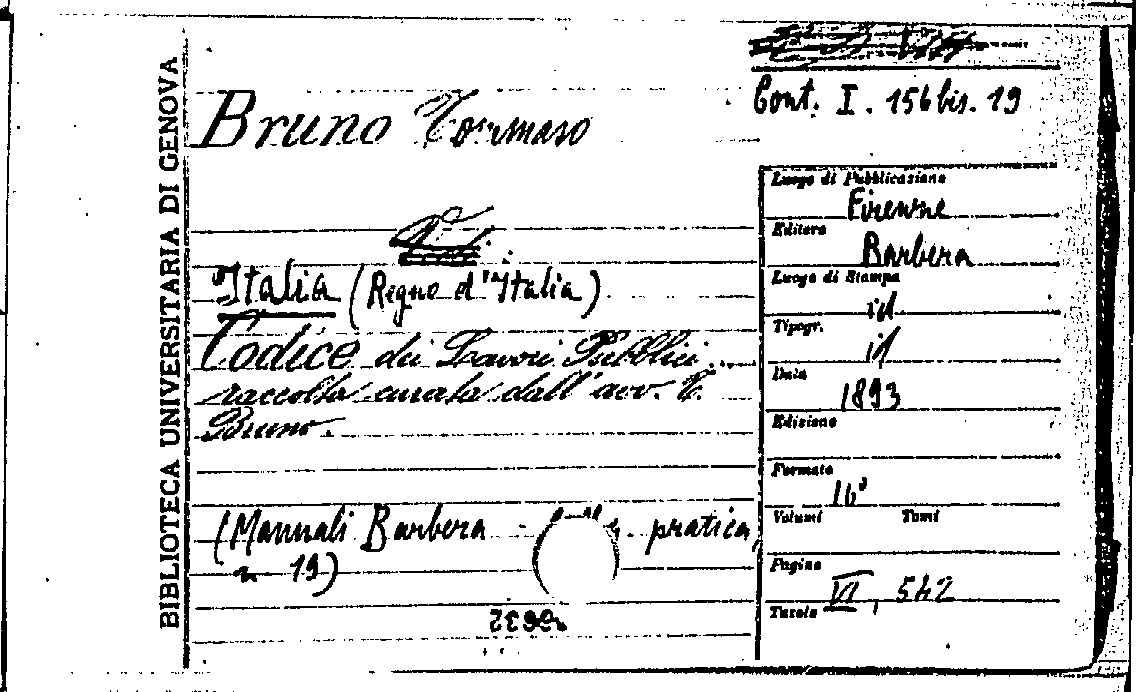 BIBLIOTECA UNIVERSITARIA DI GENOVA
Cont. I. 156 bis. 19
Bruno Tommaso
Italia (Regno d'Italia)
Codice dei Lavori Pubblici
raccolta curata dall'avv. T.
Bruno.
(Manuali Barbera - pratica,
n 19)
Luogo di Pubblicazione
Firenze
Editore
Barbera
Luogo di Stampa
id
Tipogr.
id
Data
1893
Edizione
Formato
16°
Volumi Tomi
Pagine
VI, 542
Tavole